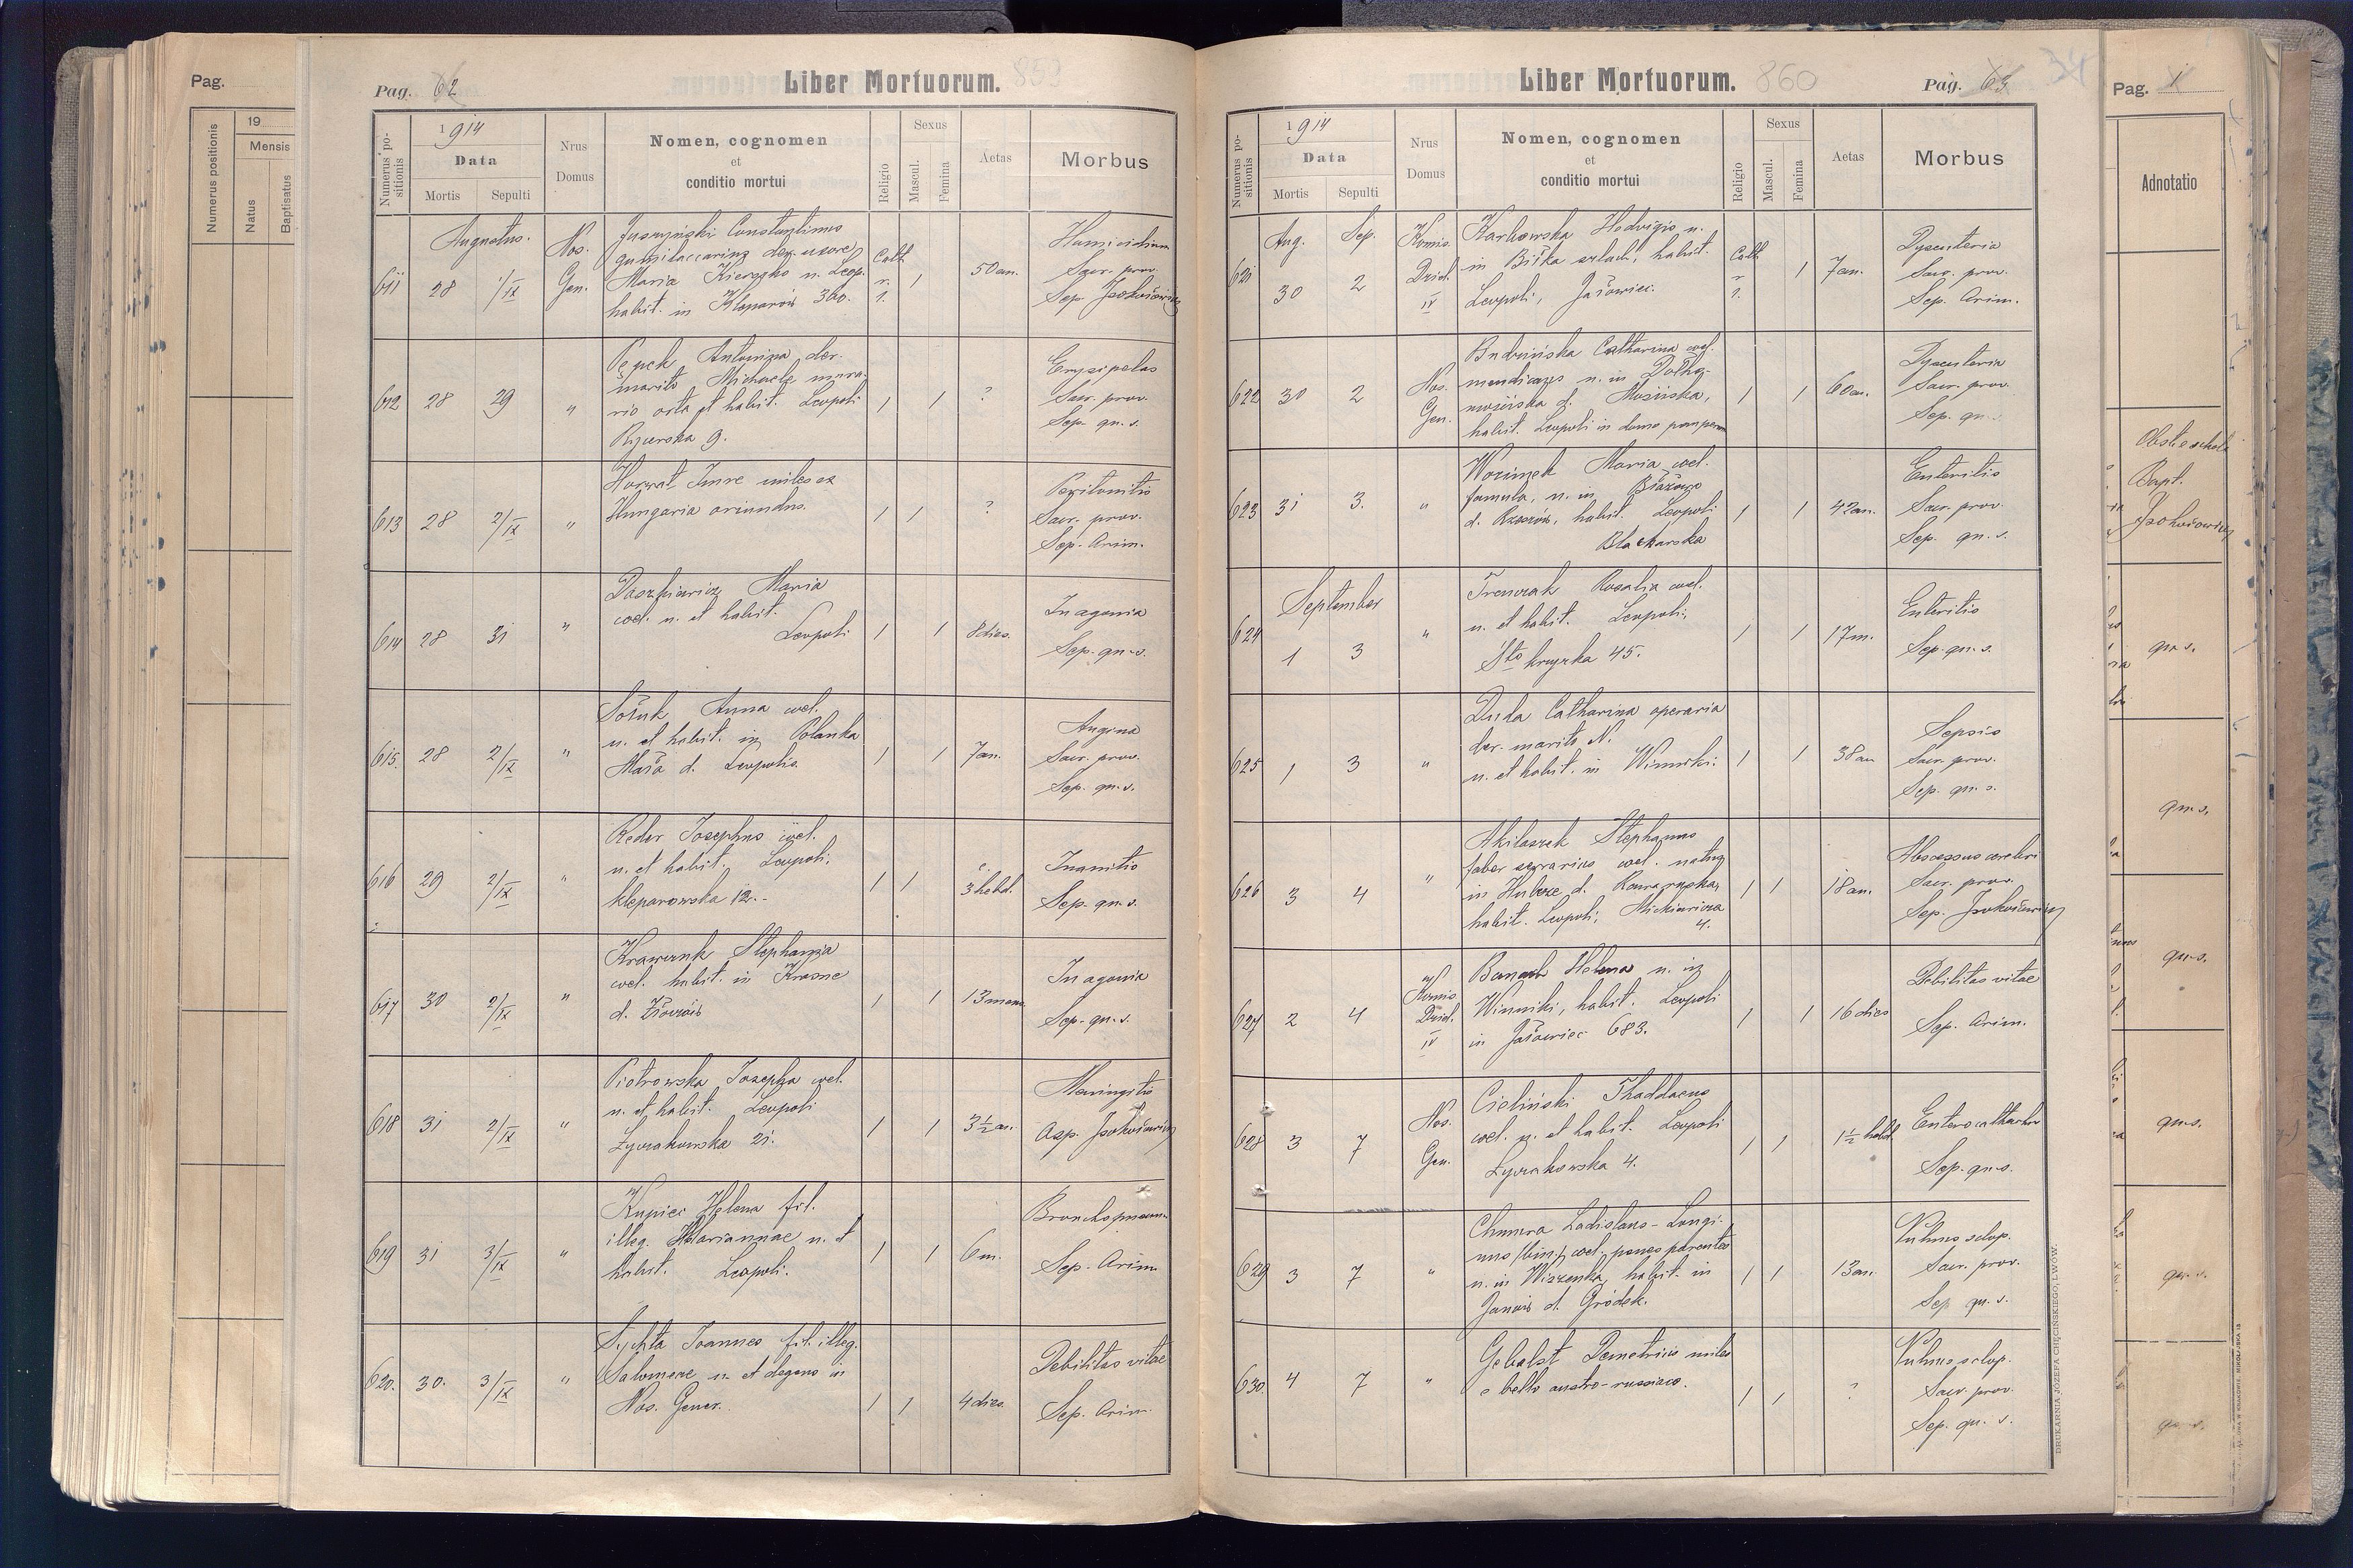 Pag.
Numerus positionis
19
Mensis
Natus
Baptisatus
Pag. 62
Liber Mortuorum.
Numerus positionis
1914
Data
Mortis
Sepulti
Nrus Domus
Nomen, cognomen
et
conditio mortui
Religio
Sexus
Mascul.
Femina
Aetas
Morbus
Augustus.
611 28 1/IX Nos. Gen.
Constantinus
Maria
habit. in Kleparów 360.
Cath. r. l.
1 50 an.
Homicidium
Sacr. prov.
Sep.
612 28 29 "
Antonina der.
marito Michaele mura-
rio orta et habit. Leopoli
9.
1 1 ?
Erysipelas
Sacr. prov.
Sep. qu. s.
613 28 2/IX "
Horwat Imre miles ex
Hungaria oriundus.
1 1 ?
Peritonitis
Sacr. prov.
Sep. Arim.
614 28 31 "
Daszkiewicz Maria
coel. n. et habit.
Leopoli
1 1 8 dies.
In agonia
Sep. qu. s.
615. 28 2/IX "
Anna coel.
n. et habit. in Polanka
Mała d. Leopolis
1 1 7 an.
Angina
Sacr. prov.
Sep. qu. s.
616 29 2/IX "
Reder Josephus coel.
n. et habit. Leopoli,
Kleparowska 12.
1 1 3 hebd.
Inanitio
Sep. qu. s.
617 30 2/IX "
Krawczuk Stephania
coel. habit. in Krasne
d. Złoczów
1 1 13 mens.
In agonia
Sep. qu. s.
618 31 2/IX "
Piotrowska Josepha coel.
n. et habit. Leopoli
Łyczakowska 21.
1 1 3½ an.
Meningitis
619 31 3/IX "
Kupiec Helena fil.
illeg. Mariannae n. et
habit. Leopoli.
1 1 6 m.
Bronchopneum.
Sep. Arim.
620. 30. 3/IX "
Joannes fil. illeg.
Salomeae n. et degens in
Nos. Gener.
1 1 4 dies.
Debilitas vitae
Sep. Arim.
Liber Mortuorum. 860
Pag. 63
Numerus positionis
1914
Data
Mortis
Sepulti
Nrus Domus
Nomen, cognomen
et
conditio mortui
Religio
Sexus
Mascul.
Femina
Aetas
Morbus
Aug. Sep.
621 30 2 Komis. Dziel. IV
Karkowska Hedvigis n.
in Biłka szlach., habit.
Leopoli, Jałowiec.
Cath. r. l.
1 7 an.
Dysenteria
Sacr. prov.
Sep. Arim.
622 30 2 Nos. Gen.
Catharina coel.
n. in
d. Mościska,
habit. Leopoli in domo pauperum
1 1 60 an.
Dysenteria
Sacr. prov.
Sep. qu.
623 31 3. "
Maria coel.
famula, n. in Błażowa
d. Rzeszów, habit. Leopoli
Blacharska
1 1 42 an.
Enteritis
Sacr. prov.
Sep. qu. s.
September
624 1 3 "
Rosalia coel.
n. et habit. Leopoli,
Sto krzyska 45.
1 1 17 m.
Enteritis
Sep. qu. s.
625 1 3 "
Duda Catharina operaria
der. marito N.
n. et habit. in Winniki.
1 1 38 an
Sepsis
Sacr. prov.
Sep. qu. s.
626 3 4 "
Stephanus
faber serrarius coel. natus
in d.
habit. Leopoli, Mickiewicza
4.
1 1 18 an.
Abscessus cerebri
Sacr. prov.
Sep.
627 2 4 Komis. Dziel. IV
Banach Helena n. in
Winniki, habit. Leopoli
in Jałowiec 683.
1 1 16 dies
Debilitas vitae
Sep. Arim.
628 3 7 Nos. Gen.
Cieliński Thaddaeus
coel. n. et habit. Leopoli
Łyczakowska 4.
1 1 1½ hebd.
Sep. qu. s.
629 3 7 "
Chmura Ladislaus-Longi-
nus (bin.) coel. penes parentes
n. in Wiszenka, habit. in
Janów d. Gródek.
1 1 13 an.
Vulnus sclop.
Sacr. prov.
Sep. qu. s.
630. 4 7 "
Demetrius miles
e bello austro-russiaco.
1 1 ?
Vulnus sclop.
Sacr. prov.
Sep. qu. s.
DRUKARNIA JÓZEFA CHĘCIŃSKIEGO, LWÓW.
Pag. 1
Adnotatio
Bapt.
qu. s.
qu. s.
qu. s.
qu. s.
qu. s.
qu. s.